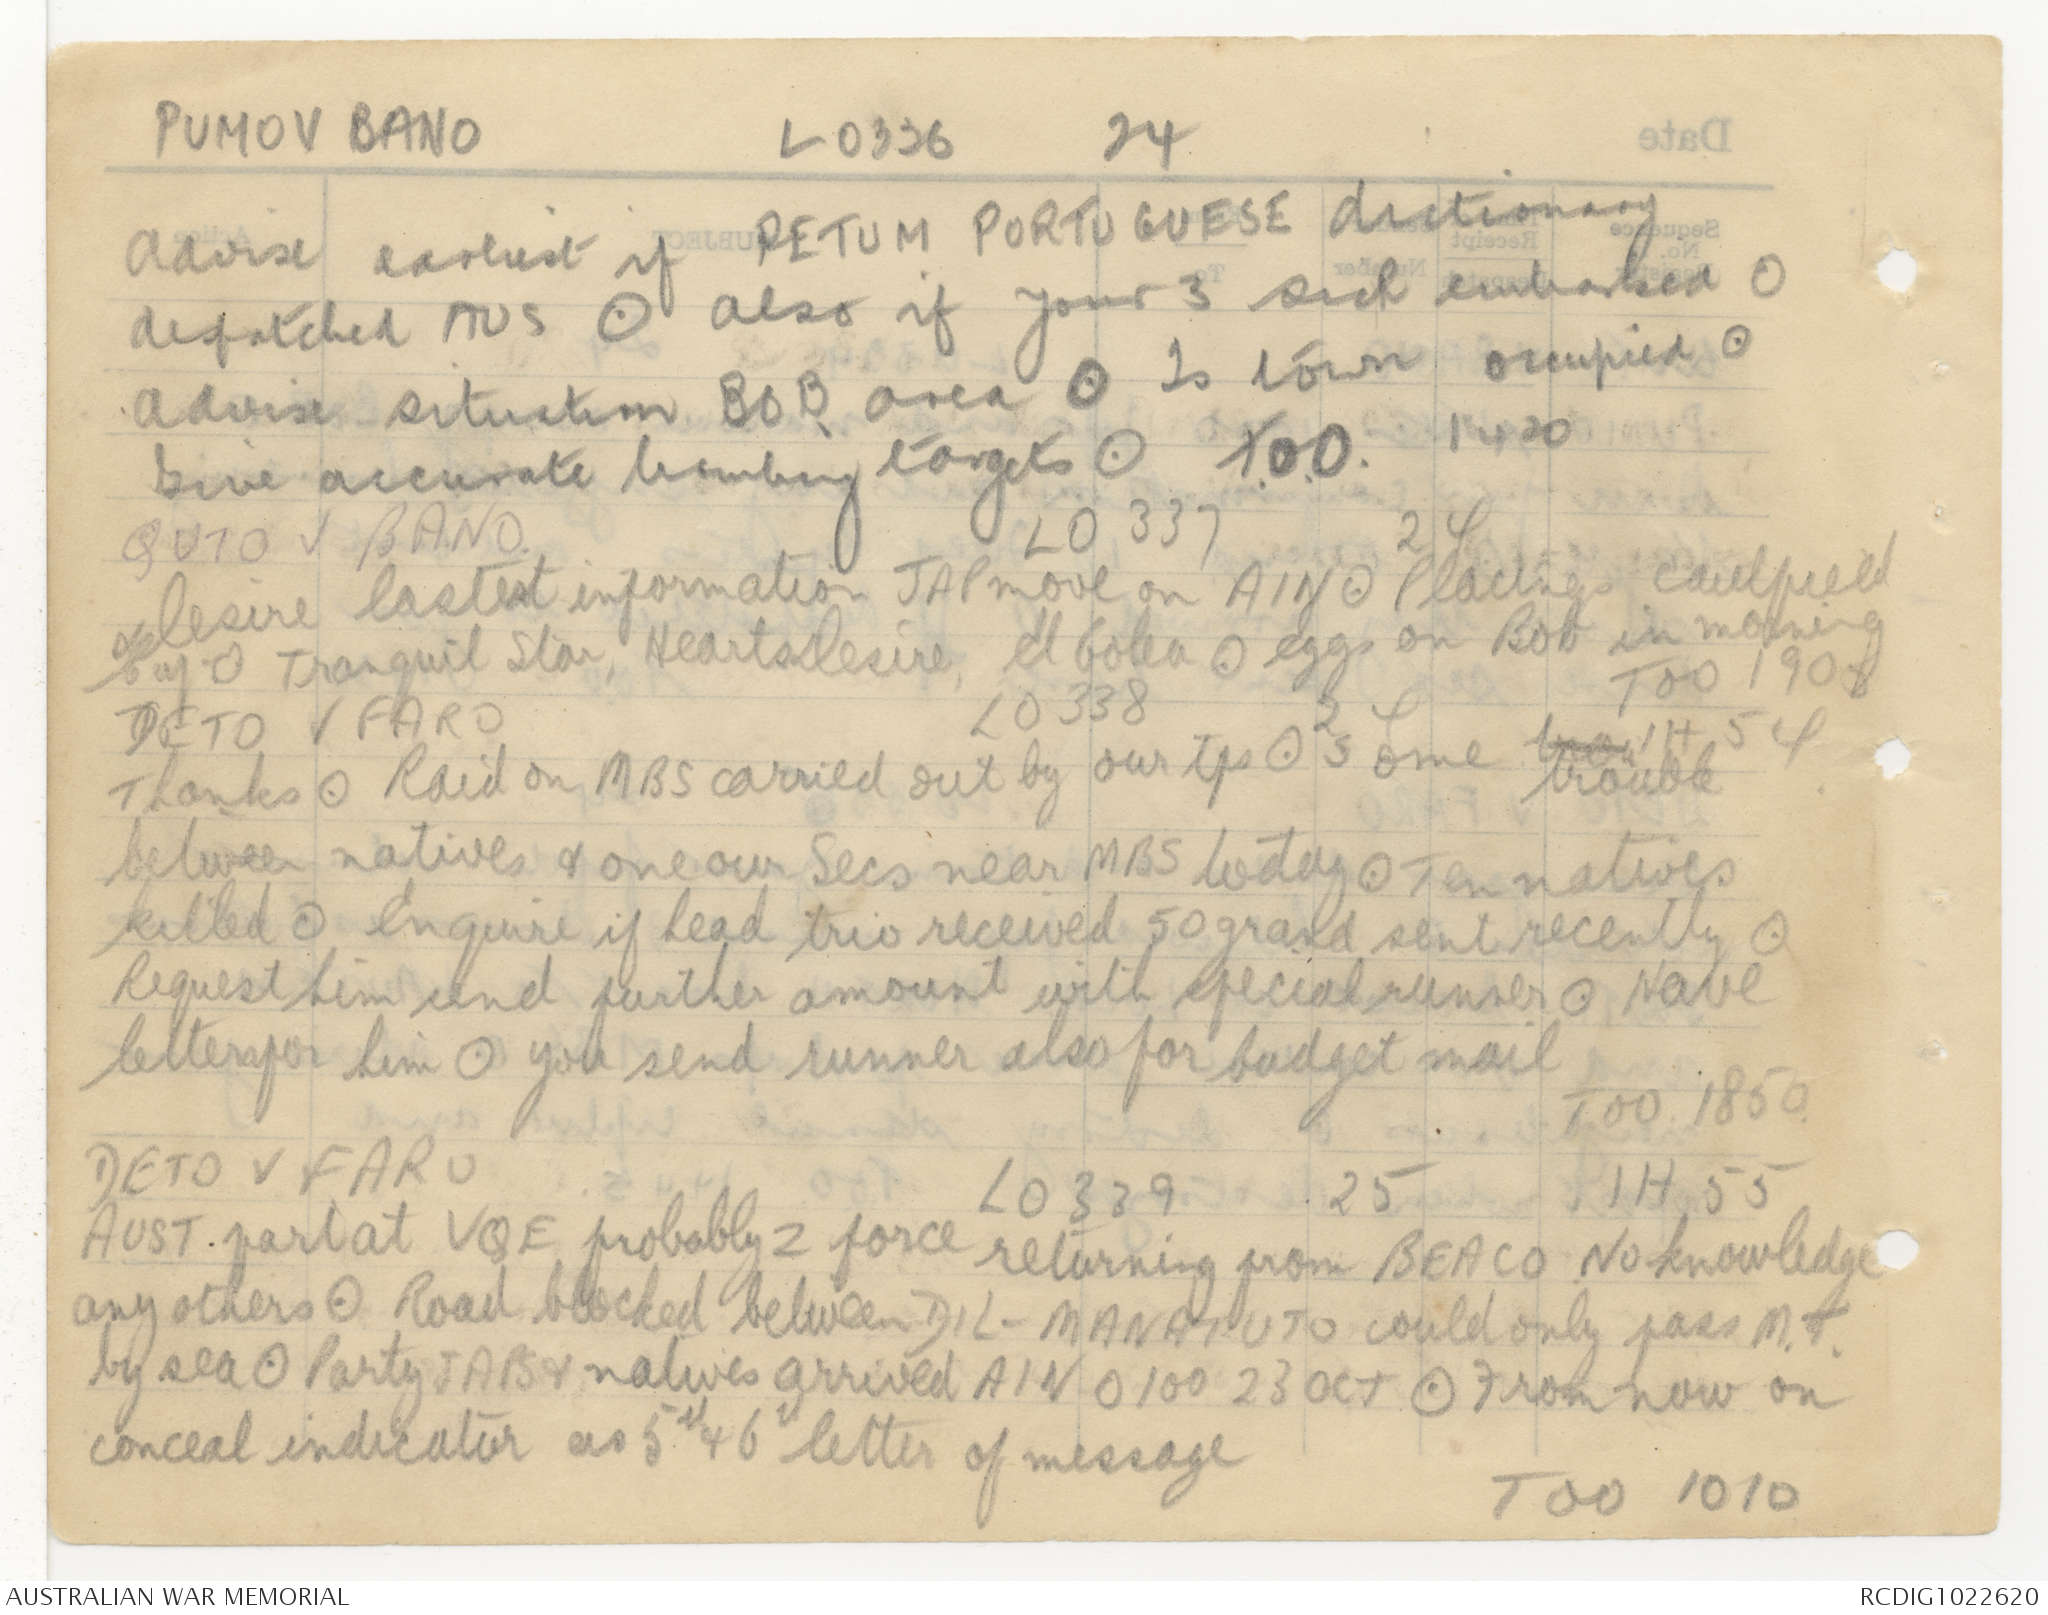 PUMOV BANO L0336 24
Advise earliest if RETUM PORTUGUESE dictionary
despatched AUS ⊙ also if your 3 sick embarked ⊙
advise situation BOB area ⊙ Is town occupied ⊙
Give accurate bombing targets ⊙ T.O.O. 1420
QUTO V BANO L0 337 24
desire lastest information JAP move on AIN ⊙ Placings caulfield
⊙ Tranquil Star, Heartsdesire, El Golea ⊙ eggs on Bob in morning
TOO 190
DETO V FARO L0338 24 1H 54
Thanks ⊙ Raid on MBS carried out by our tps ⊙ Some trouble
between natives & one our Secs near MBS today ⊙ Ten natives
killed ⊙ Enquire if head trio received 50 grand sent recently ⊙
Request him send further amount with special runner ⊙ Have
letters for him ⊙ you send runner also for budget mail
TOO 1850
DETO V FARO L0339 25 1H 55
AUST. part at VQE probably Z force returning from BEACO No knowledge
any others ⊙ Road blocked between DIL - MANATUTO could only pass M.T.
by sea ⊙ Party JAPS & natives arrived AIN 0100 23 OCT ⊙ From now on
conceal indicator as 5th & 6th letter of message
TOO 1010
Date
AUSTRALIAN WAR MEMORIAL
RCDIG1022620